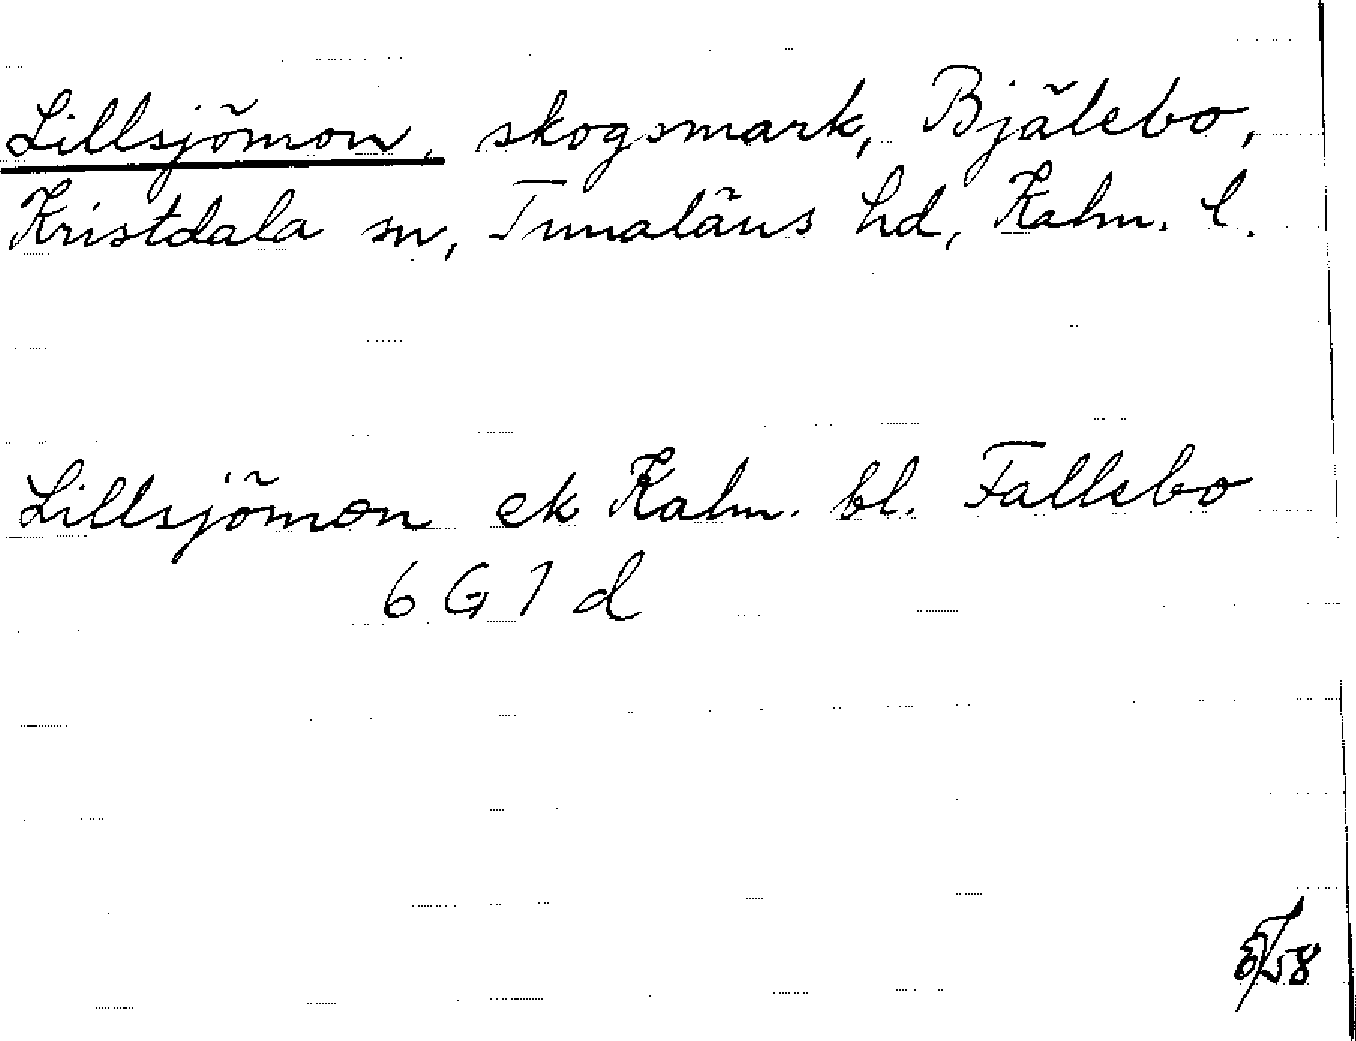 Lillsjömon, skogsmark, Bjälebo,
Kristdala sn, Tunaläns hd, Kalm. l.
Lillsjömon ek Kalm. bl. Fallebo
6 G 1 d